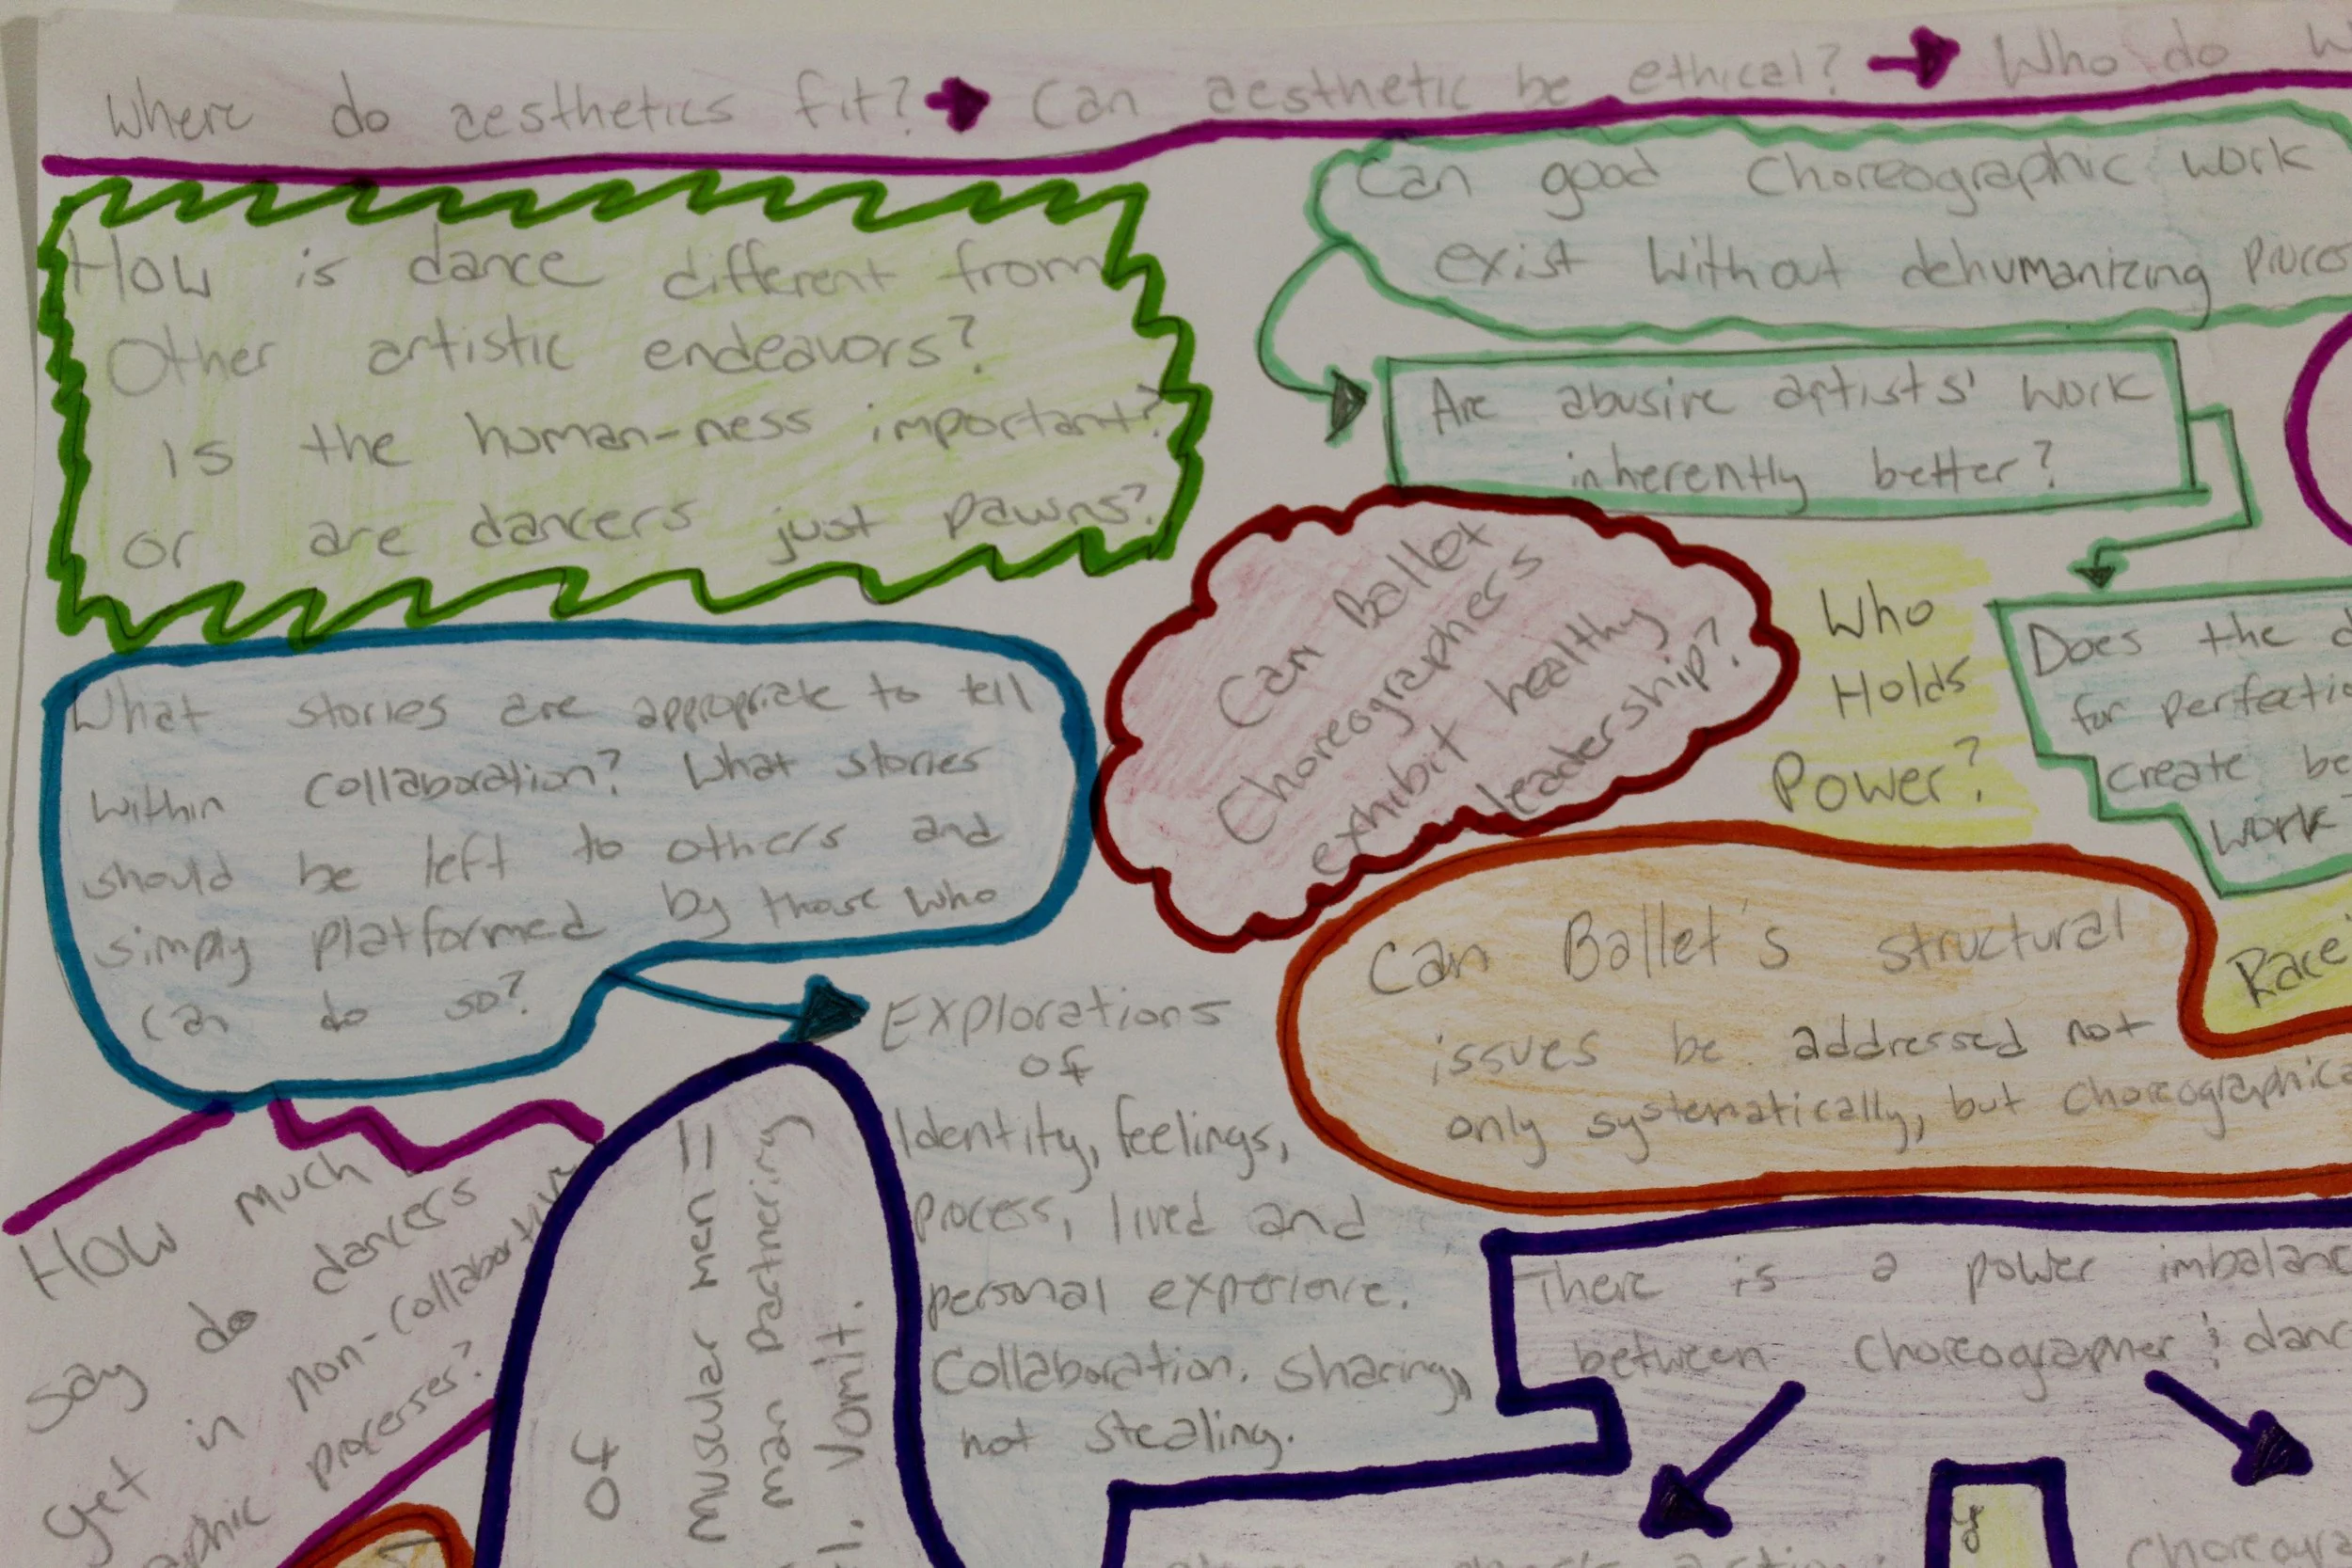 Where do aesthetics fit? → Can aesthetic be ethical? → Who do
How is dance different from
Other artistic endeavors?
Is the human-ness important?
or are dancers just pawns?
Can good Choreographic work
exist without dehumanizing
Are abusive artists' work
inherently better?
Does the
for
create
work
Can Ballet
Choreographers
exhibit healthy
leadership?
Who
Holds
Power?
What stories are appropriate to tell
within collaboration? What stories
should be left to others and
simply platformed by those who
can do so?
Explorations
of
Identity, feelings,
process, lived and
personal experience.
Collaboration. Sharing,
not stealing.
Can Ballet's structural
issues be addressed not
only systematically, but
Race
How much
Say do dancers
get in non-collaborative
processes?
of
muscular men =
man partnering
Vomit.
There is a power
between Choreographer &